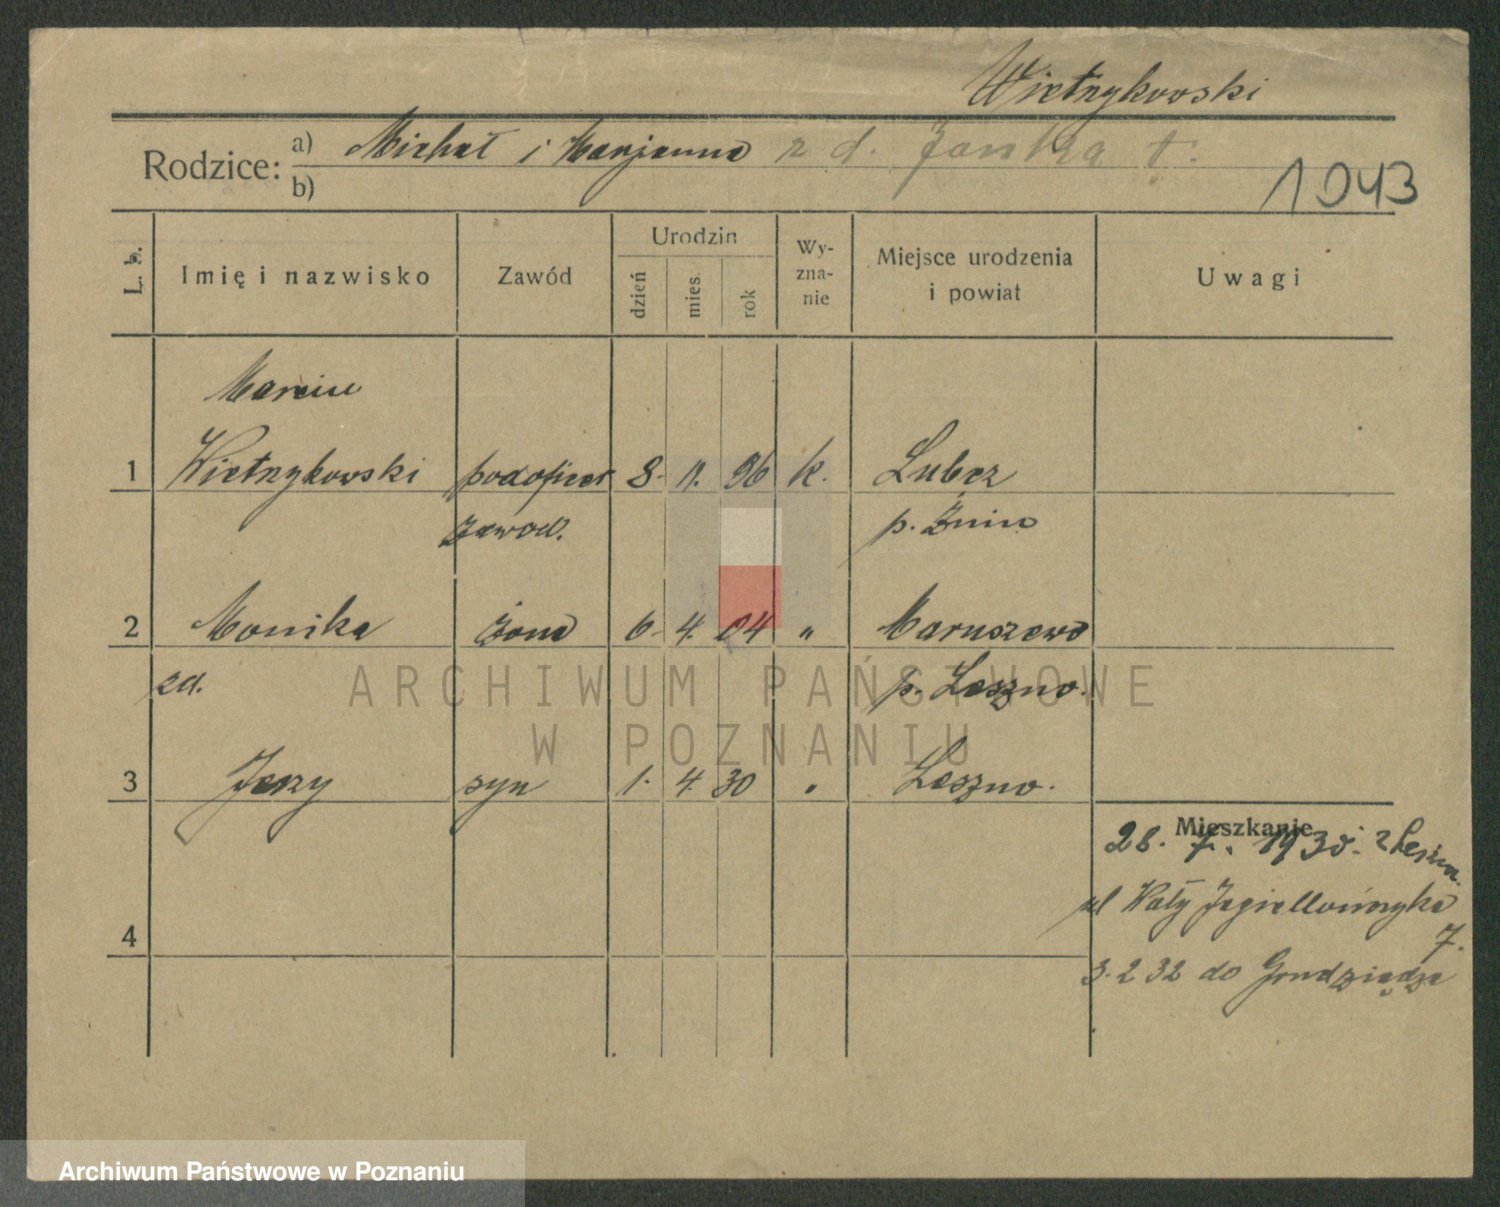 Wietrzykowski
Rodzice: a) Michał i Marjanna z d. Janka t.
b)
1943
L. b.
Imię i nazwisko
Zawód
Urodzin
dzień
mies.
rok
Wy-
zna-
nie
Miejsce urodzenia
i powiat
Uwagi
Marcin
1 Wietrzykowski podoficer 8. 11. 96 k. Lubcz
zawod. p. Żnin
2 Monika żona 6. 4. 04 " Maruszewo
zd. p. Leszno.
3 Jerzy syn 1. 4. 30 " Leszno.
Mieszkanie
28. 7. 1930. z Leszna.
ul Wały Jagiellończyka
7.
4
3. 2 32 do Grudziądza
ARCHIWUM PAŃSTWOWE
W POZNANIU
Archiwum Państwowe w Poznaniu